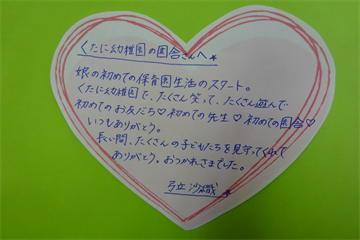 くたに幼稚園の園舎さんへ
娘の初めての保育園生活のスタート。
くたに幼稚園で、たくさん笑って、たくさん遊んで
初めてのお友だち♡初めての先生♡初めての園舎♡
いつもありがとう。
長い間、たくさんの子どもたちを見守ってくれて
ありがとう。おつかれさまでした。
弓立 沙織